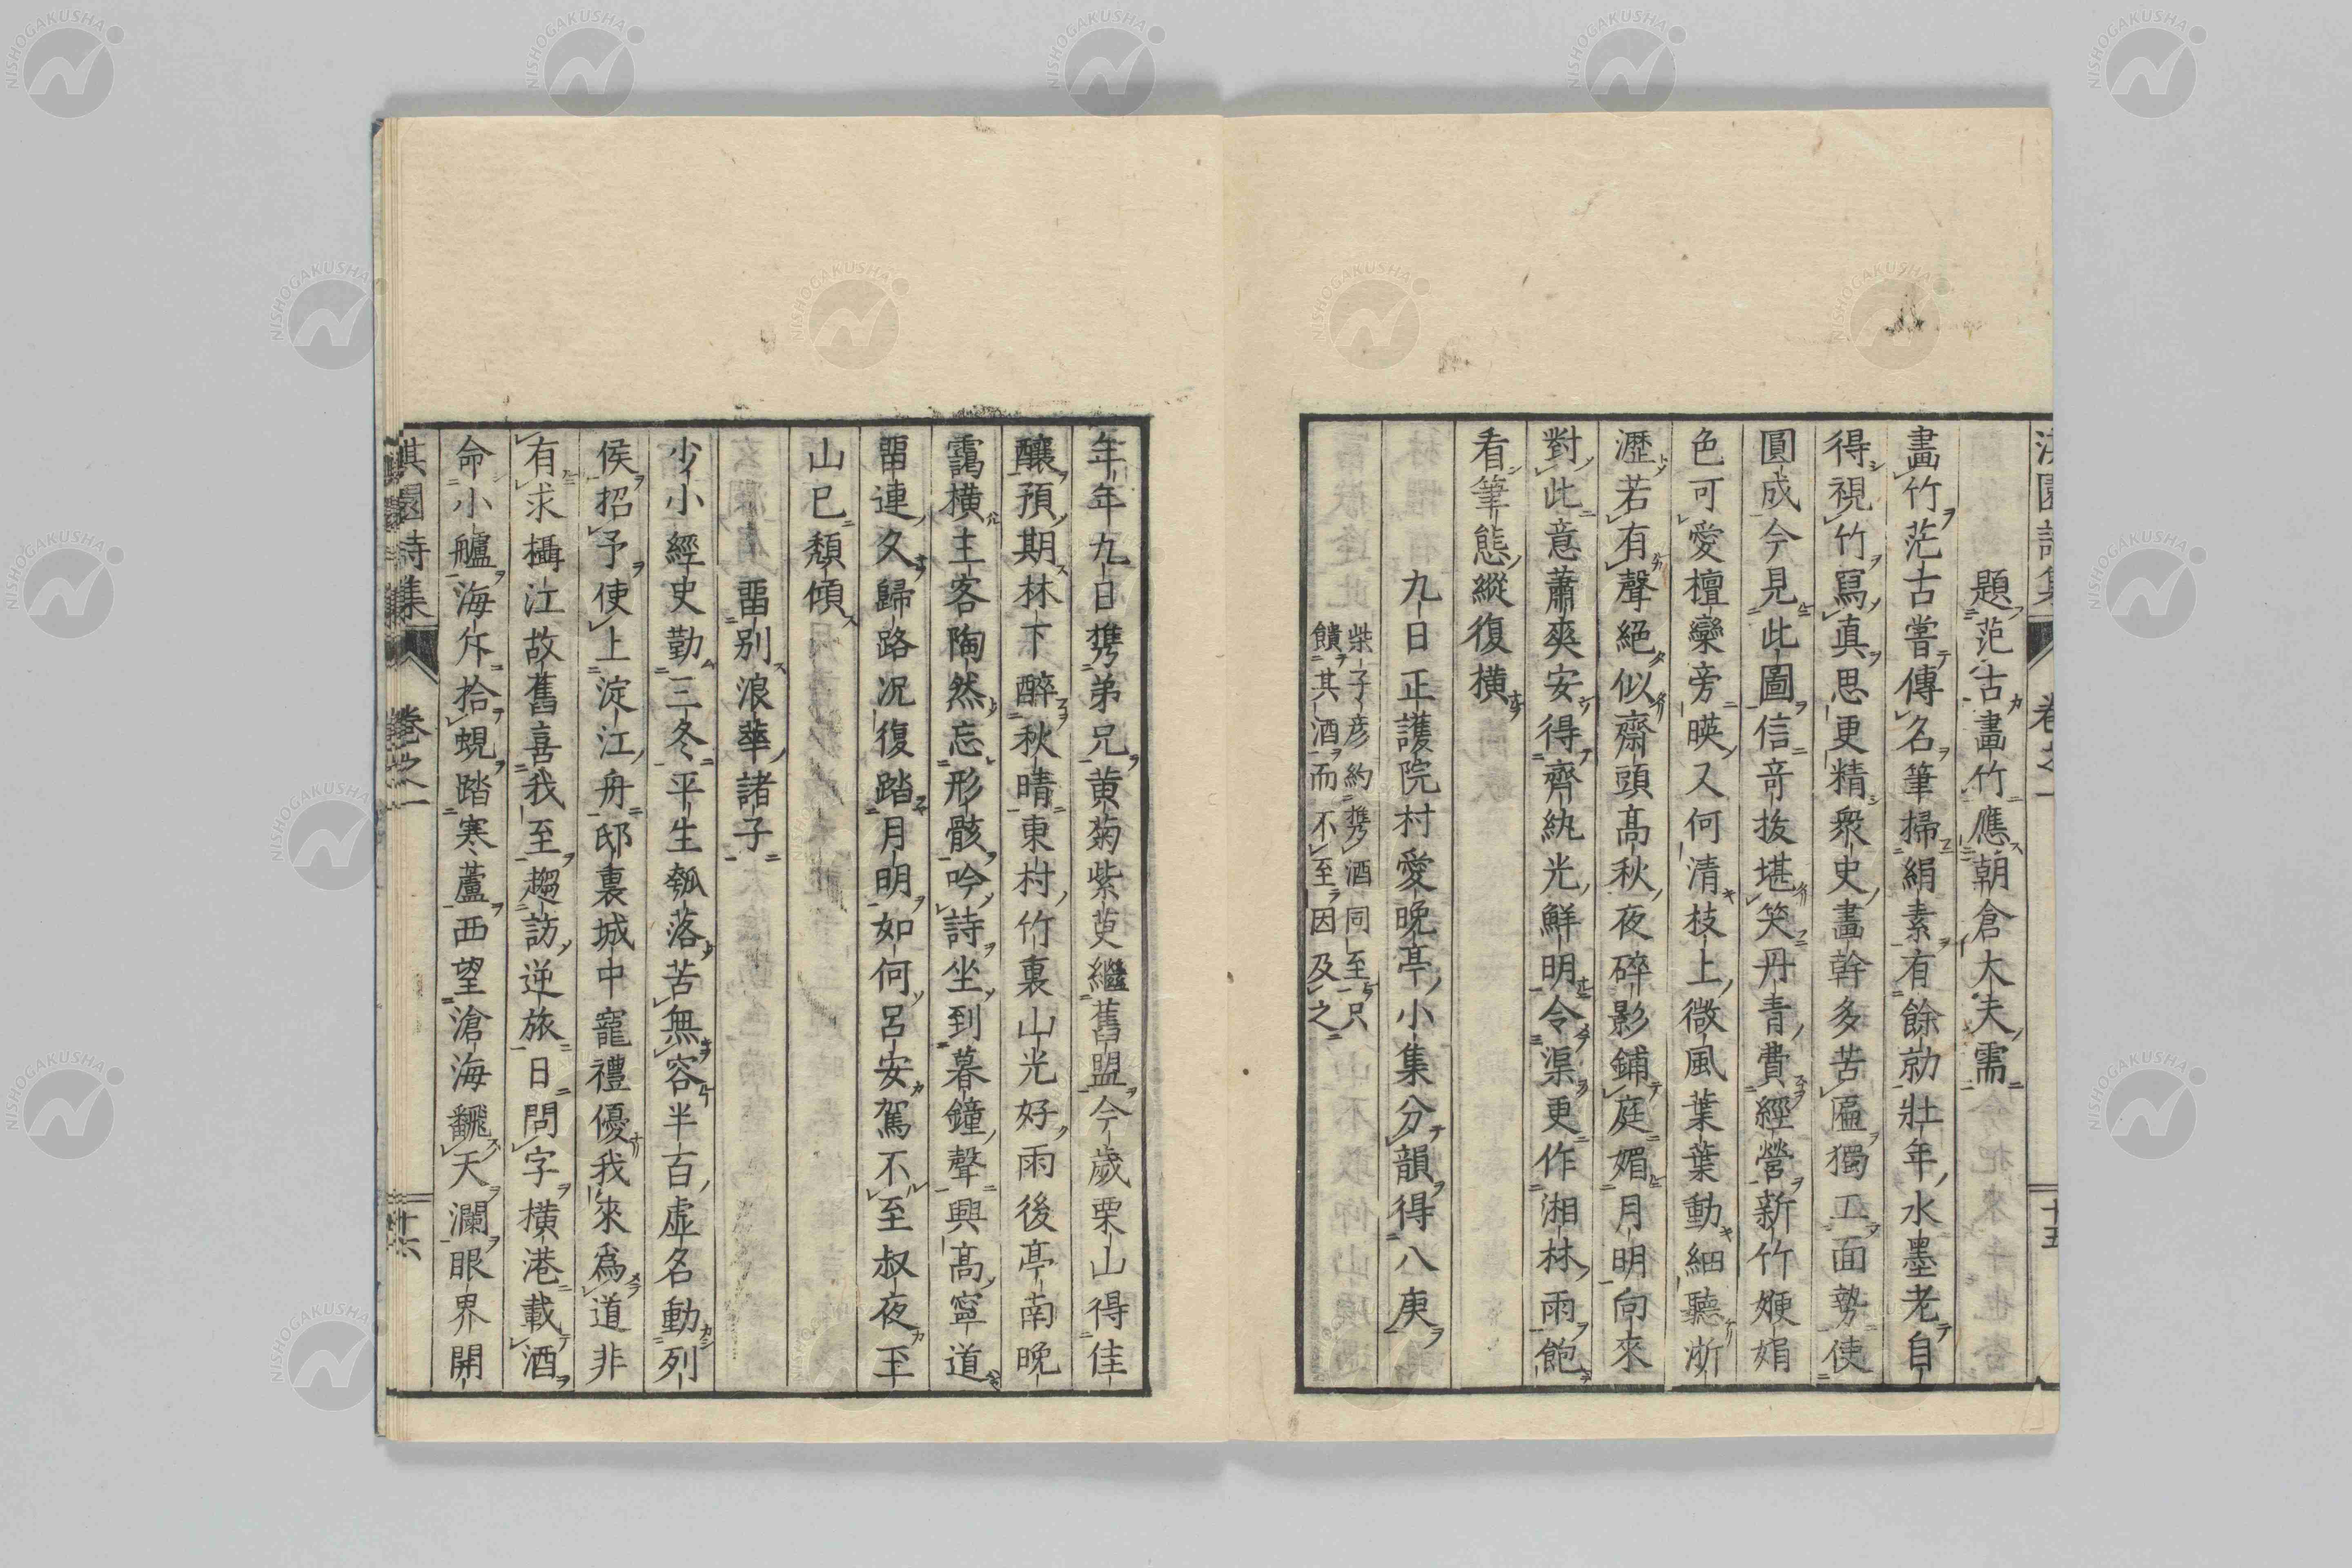 淇園詩集 卷之一 十五
題范古畫竹應朝倉大夫需
畫竹范古嘗傳名筆掃絹素有餘勍壯年水墨老自
得視竹寫真思更精衆史畫幹多苦匾獨工面勢使
圓成今見此圖信竒抜堪笑丹青費經營新竹㛹娟
色可愛檀欒旁暎又何清枝上微風葉葉動細聽淅
瀝若有聲絕似齋頭髙秋夜碎影鋪庭媚月明向來
對此意蕭爽安得齊紈光鮮明令渠更作湘林雨飽
看筆態縱復橫
九日正護院村愛晩亭小集分韻得八庚
柴子彦約攜酒同至只
饋其酒而不至因及之
年年九日攜弟兄黄菊紫萸繼舊盟今歲栗山得佳
釀預期林下醉秋晴東村竹裏山光好雨後亭南晩
靄橫主客陶然忘形骸吟詩坐到暮鐘聲興髙寧道
畱連久歸路况復踏月明如何呂安駕不至叔夜玉
山已頽傾
畱别浪華諸子
少小經史勤三冬平生瓠落苦無容半百虚名動列
侯招予使上淀江舟邸裏城中寵禮優我來爲道非
有求攝江故舊喜我至趨訪逆旅日問字橫港載酒
命小艫海斥拾蜆踏寒蘆西望滄海飜天瀾眼界開
淇園詩集 卷之一 十六